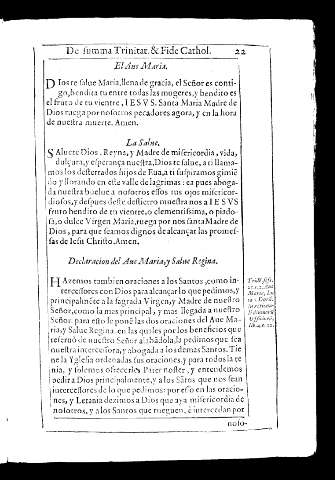 De summa Trinitat. & Fide Cathol. 22
El Aue Maria.
DIos te salue Maria, llena de gracia, el Señor es conti-
go, bendita tu entre todas las mugeres, y bendito es
el fruto de tu vientre, IESVS. Santa Maria Madre de
Dios ruega por nosotros pecadores agora, y en la hora
de nuestra muerte. Amen.
La Salue.
SAlue te Dios, Reyna, y Madre de misericordia, vida,
dulçura, y esperança nuestra, Dios te salue, a ti llama-
mos los desterrados hijos de Eua, a ti suspiramos gimiē
do y llorando en este valle de lagrimas: ea pues aboga-
da nuestra buelue a nosotros essos tus ojos misericor-
diosos, y despues deste destierro muestra nos a IESVS
fruto bendito de tu vientre, o clementissima, o piado-
sa, o dulce Virgen Maria, ruega por nos santa Madre de
Dios, para que seamos dignos de alcançar las promes-
sas de Iesu Christo, Amen.
Declaracion del Aue Maria, y Salue Regina.
HAzemos tambien oraciones a los Santos, como in-
tercessores con Dios para alcançar lo que pedimos, y
principalmēte a la sagrada Virgen, y Madre de nuestro
Señor, como la mas principal, y mas llegada a nuestro
Señor para esto le ponē las dos oraciones del Aue Ma-
ria, y Salue Regina, en las quales por los beneficios que
del nuestro Señor alabādola, la pedimos que sea
nuestra intercessora, y abogada a los demas Santos. Tie
ne la Yglesia ordenadas sus oraciones, y para todos la te
nia, y solemos ofrecerles Pater noster, y entendemos
pedir a Dios principalmente, y a los Sātos que nos sean
intercessores de lo que pedimos: por esso en las oracio-
nes, y Letania dezimos a Dios que aya misericordia de
nosotros, y a los Santos que rueguen, è intercedan por
noso-